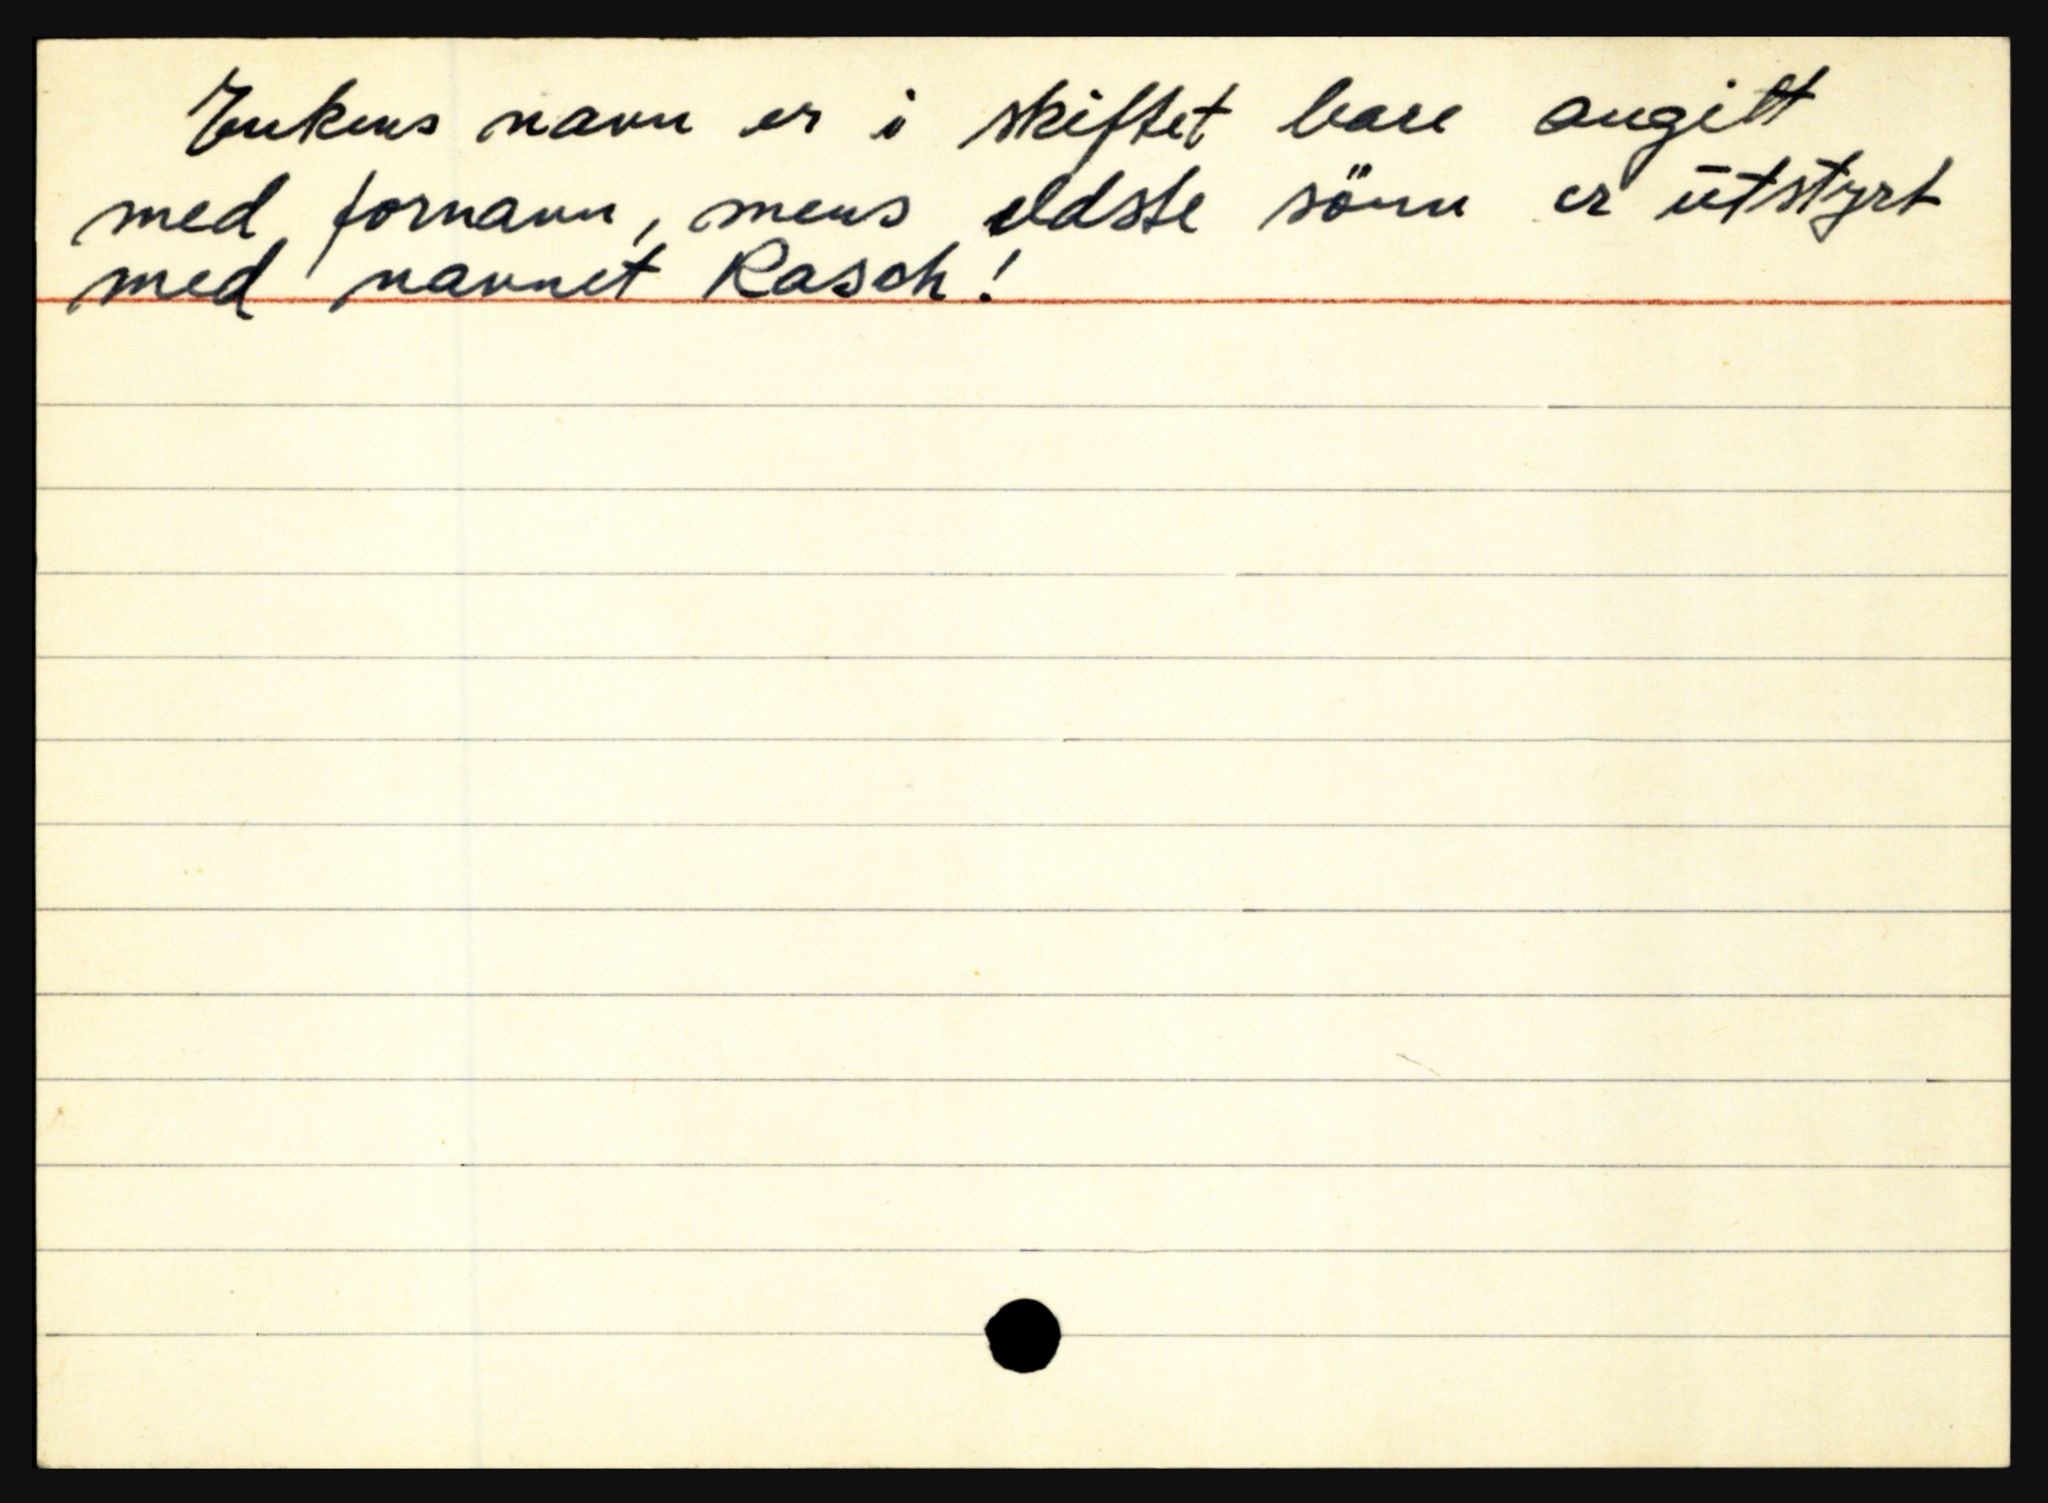 Enkens navn er i skiftet bare angitt
med fornavn, mens eldste sönn er utstyrt
med navnet Rasch!